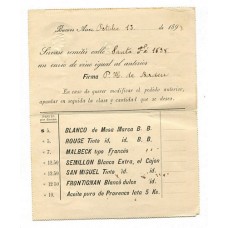 Buenos Aires Octubre 13 de 189
Sírvase remitir calle Santa Fé 1634
un envío de vino igual al anterior
Firma P. M. de
En caso de querer modificar el pedido anterior,
apuntar en seguida la clase y cantidad que se desea.
$ 5. BLANCO de Mesa Marca B. B.
5. ROUGE Tinto id. id. B. B.
7. MALBECK tipo Francés
12.50 SEMILLON Blanco Extra, el Cajon
12.50 SAN MIGUEL Tinto id. id.
FRONTIGNAN Blanco dulce id.
12. Aceite puro de Provence lata 5 Ks.